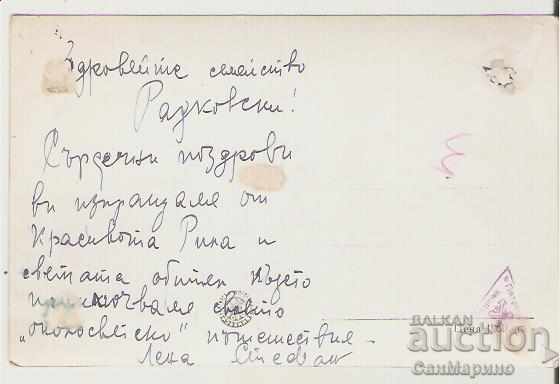 Здровейте семейство
Радковски!
Сърдечни поздрови
ви изпращаме от
Красивота Рила и
светата обител където
приключваме своето
"околосветско" пътешествие -
Лена Стефан
Цена
BALKAN
auction
СанМарино